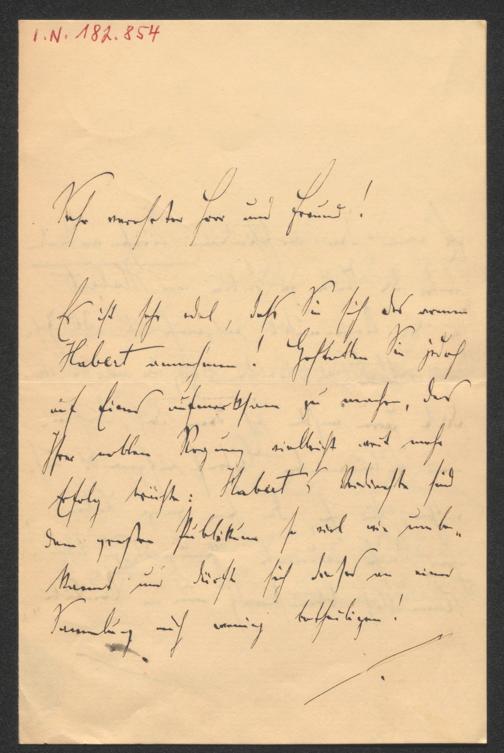 I.N. 182.854
Sehr verehrter Herr und Freund!
Es ist sehr edel, daß Sie sich des armen
Habert annehmen! Gestatten Sie jedoch
auf Eines aufmerksam zu machen, das
Ihrer noblen Regung vielleicht weit mehr
Erfolg brächte: Habert's Verdienste sind
dem großen Publikum so viel wie unbe-
kannt und dürfte sich dasselbe an einer
Sammlung nur wenig betheiligen!